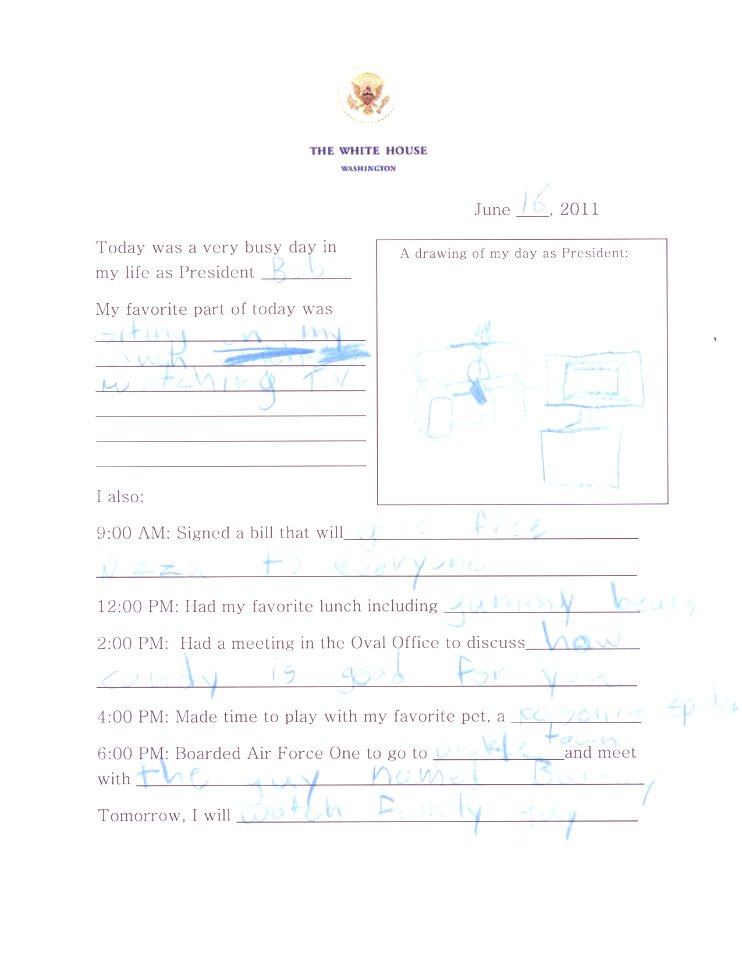 THE WHITE HOUSE
WASHINGTON
June 16, 2011
Today was a very busy day in
my life as President Bob
My favorite part of today was
siting on my
watching T.V.
A drawing of my day as President:
I also:
9:00 AM: Signed a bill that will give free
pizza to everyone
12:00 PM: Had my favorite lunch including gummy bears
2:00 PM: Had a meeting in the Oval Office to discuss how
candy is good for you
4:00 PM: Made time to play with my favorite pet, a
6:00 PM: Boarded Air Force One to go to town and meet
with the guy named
Tomorrow, I will watch family guy